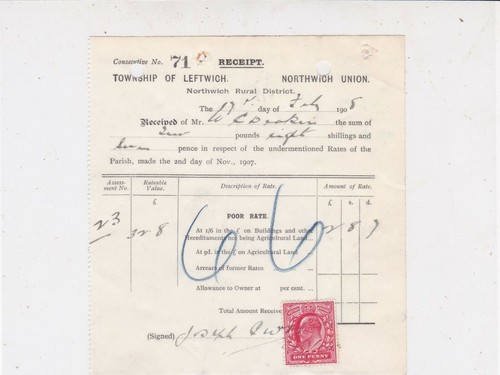 Consecutive No. 71 RECEIPT.
TOWNSHIP OF LEFTWICH. NORTHWICH UNION.
Northwich Rural District.
The 17th day of Feby 1908
Received of Mr. W C Deakin the sum of
Two pounds eight shillings and
seven pence in respect of the undermentioned Rates of the
Parish, made the 2nd day of Nov., 1907.
Assessment No. Rateable Value. Description of Rate. Amount of Rate.
£ £ s. d.
POOR RATE.
23 32 8 At 1/6 in the £ on Buildings and other 2 8 7
Hereditaments not being Agricultural Land
At 9d. in the £ on Agricultural Land
Arrears of former Rates ...
Allowance to Owner at per cent. ...
Total Amount Receive
(Signed) Joseph
ONE PENNY